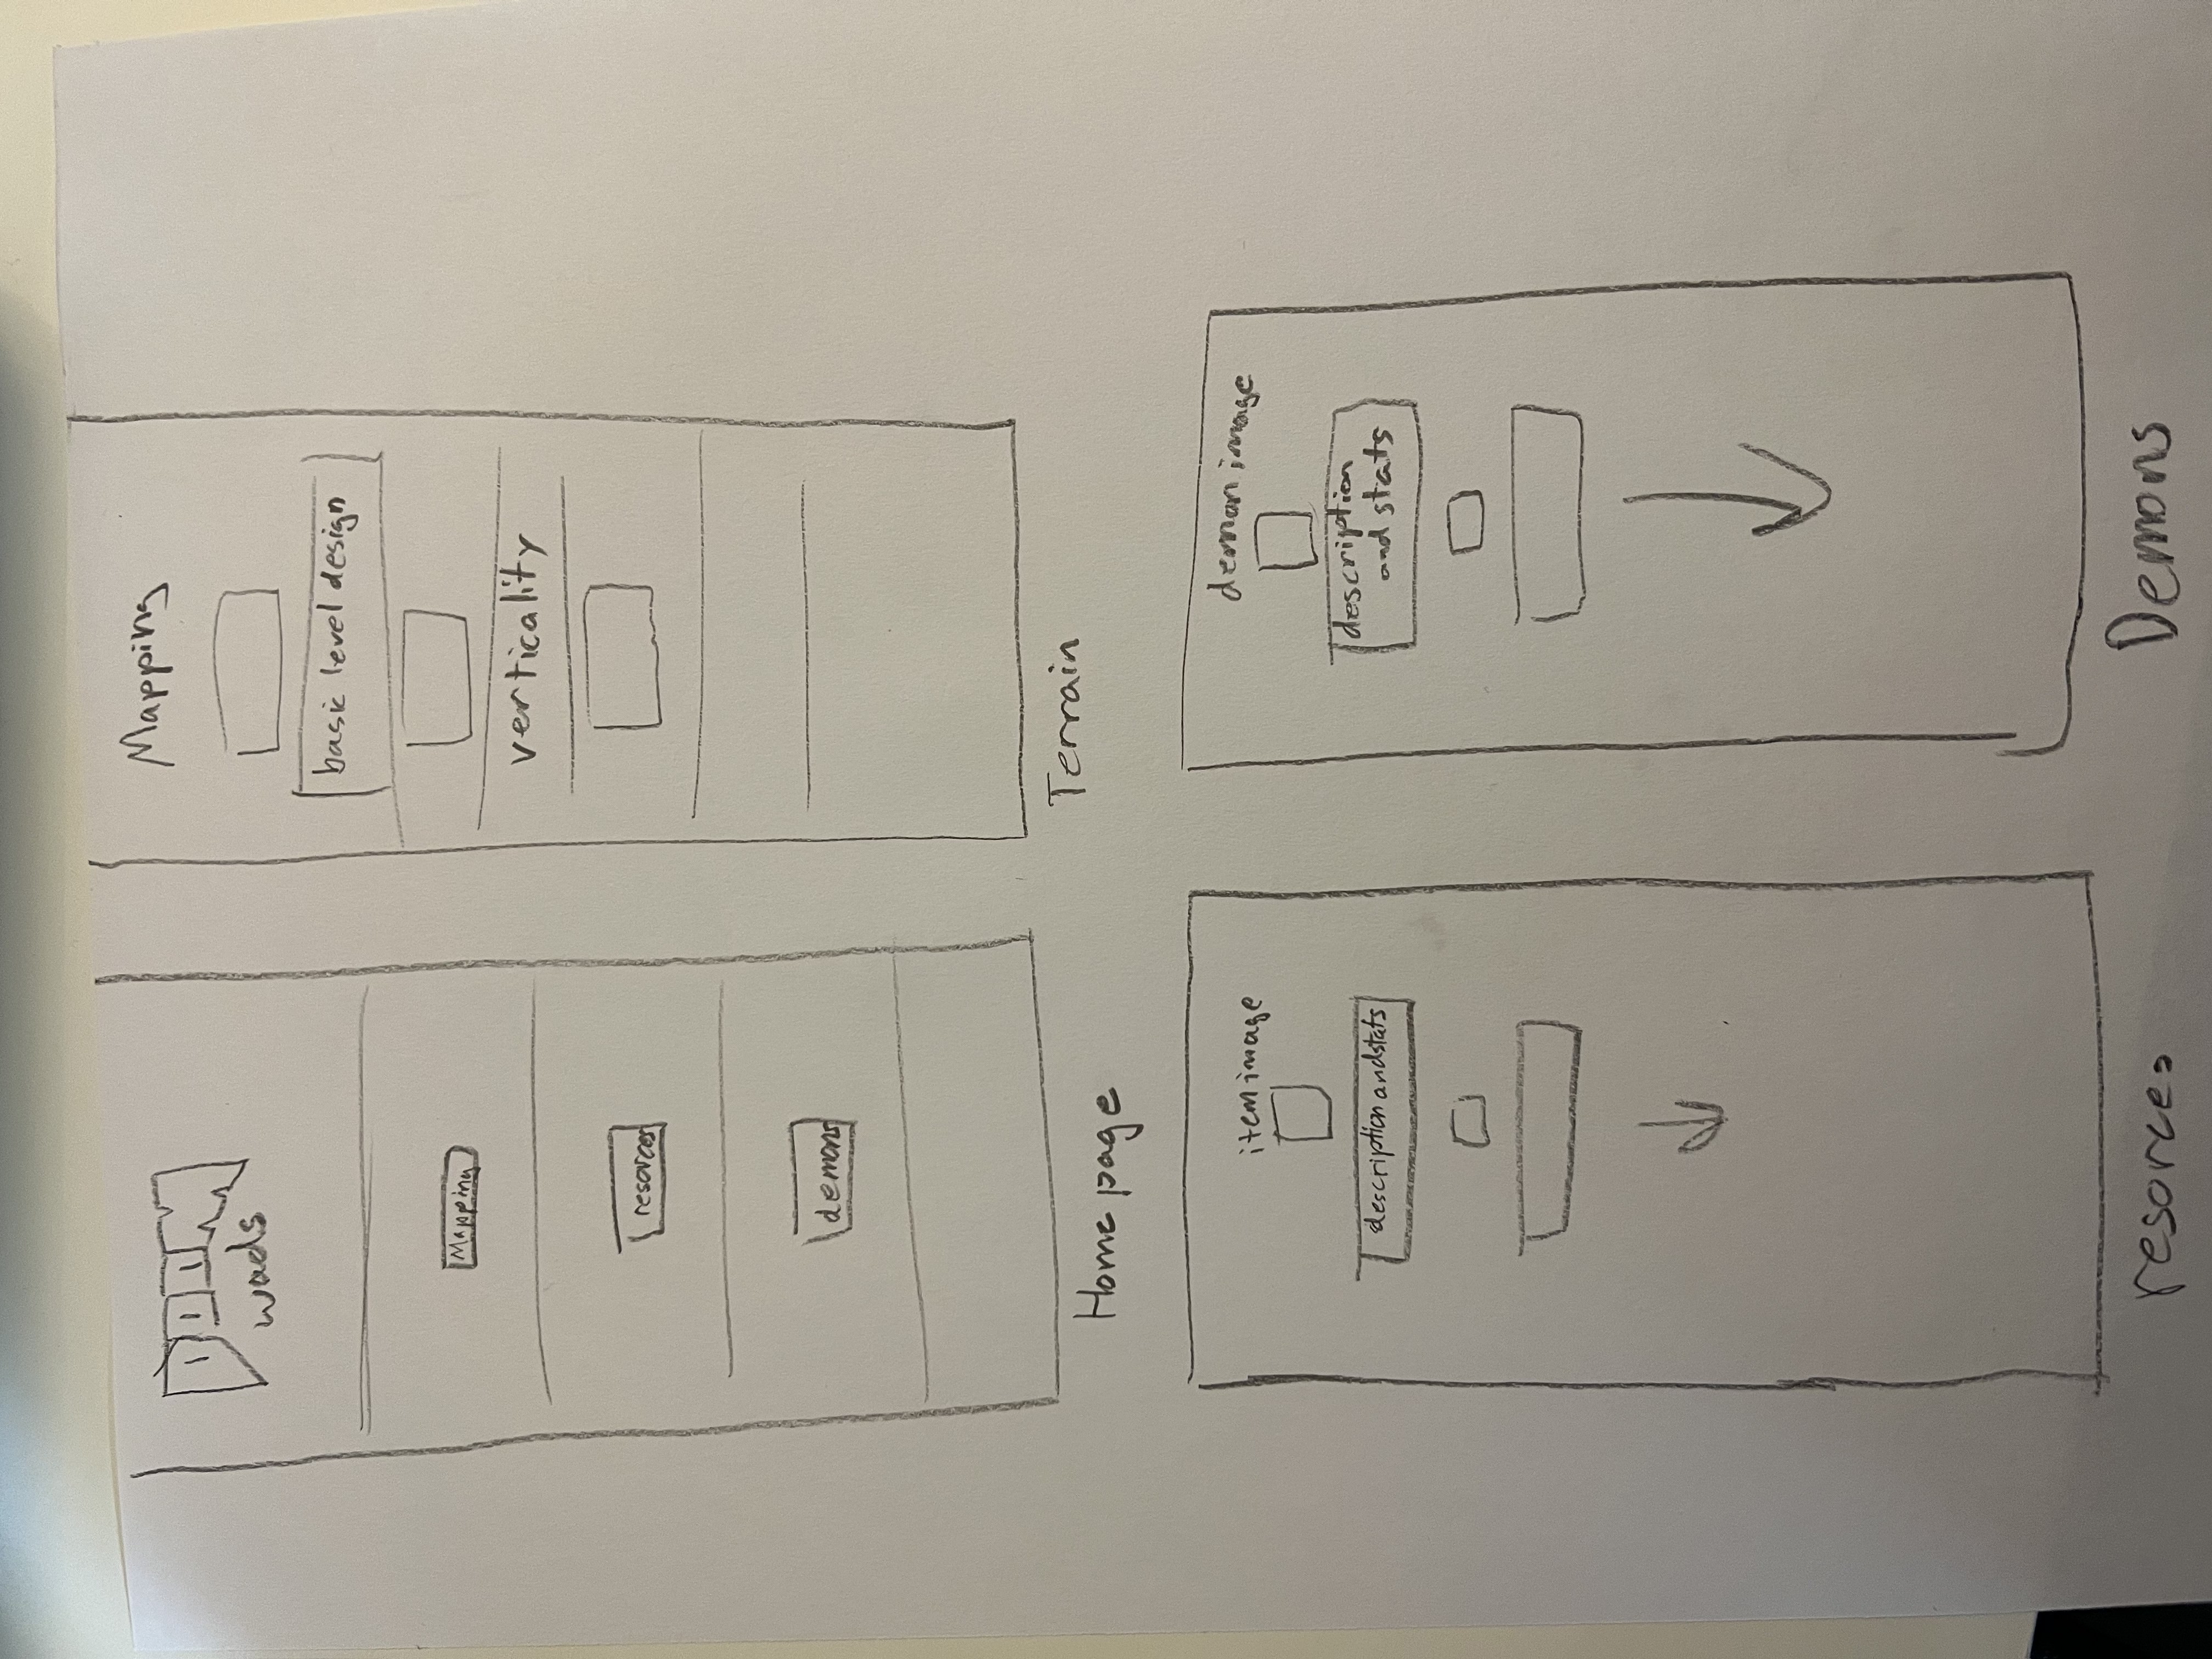 DOOM
wads
Mapping
resorces
demons
Home page
Mapping
basic level design
verticality
Terrain
item image
description and stats
resorces
demon image
description
and stats
Demons